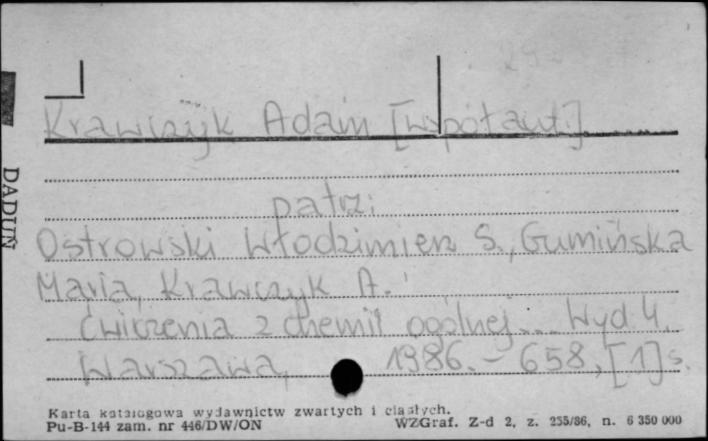 Krawczyk Adam [współaut.]
patrz:
Ostrowski Włodzimierz S., Gumińska
Maria, Krawczyk A.
Ćwiczenia z chemii ogólnej... Wyd. 4.
Warszawa, 1986. – 658, [1] s.
DADUŃ
Karta katalogowa wydawnictw zwartych i ciągłych.
Pu-B-144 zam. nr 446/DW/ON WZGraf. Z-d 2, z. 255/86, n. 6 350 000